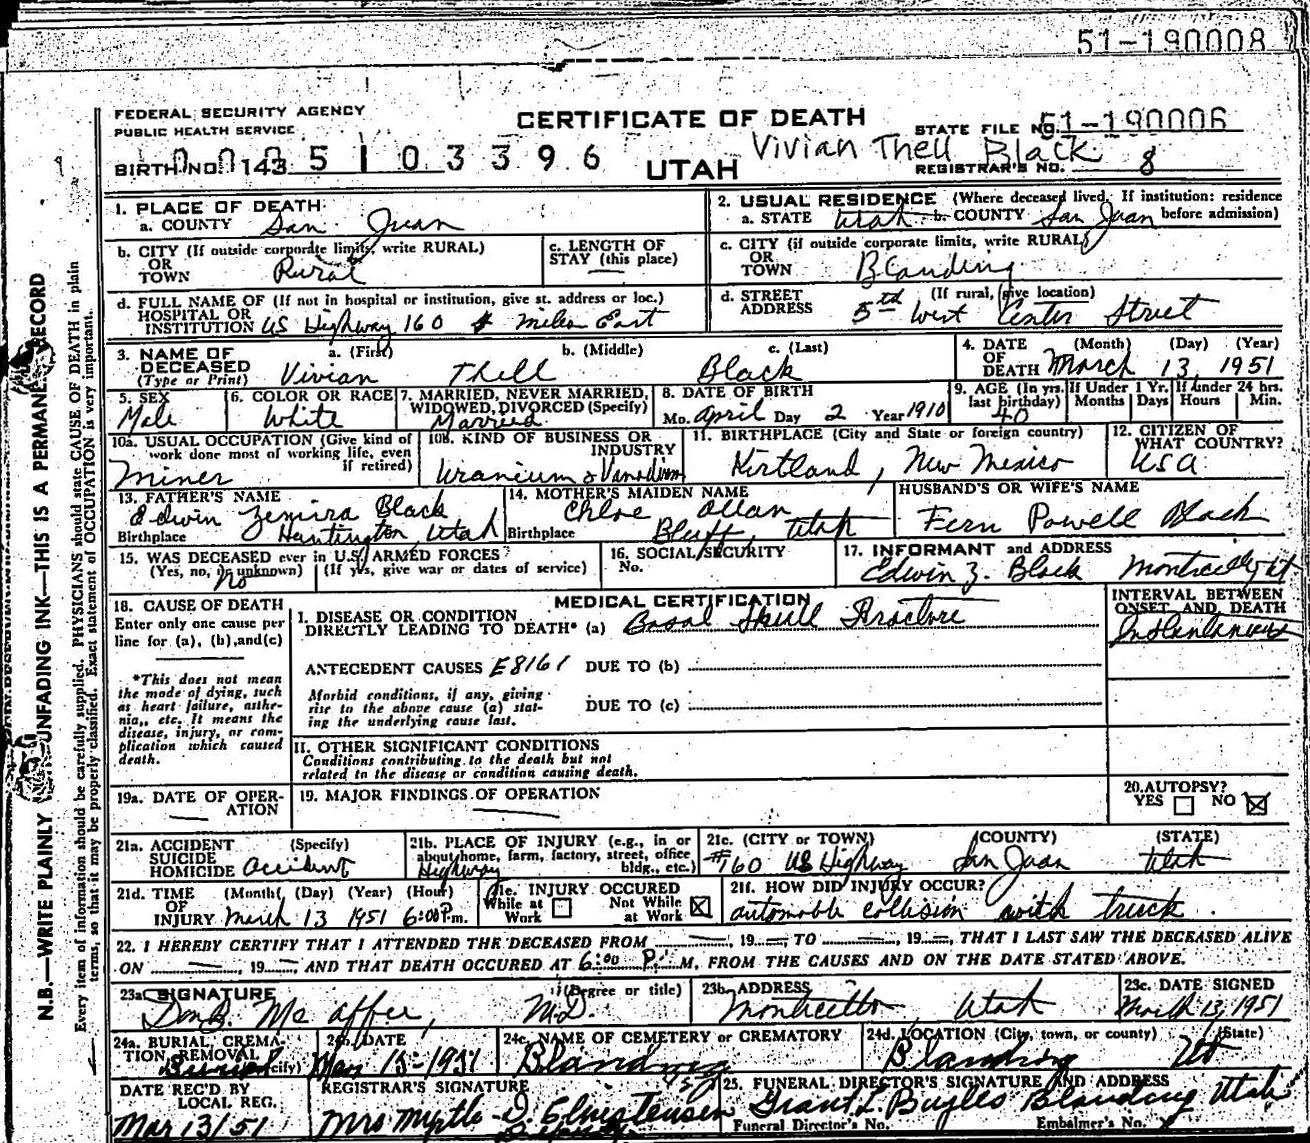 51-190008
FEDERAL SECURITY AGENCY
PUBLIC HEALTH SERVICE
CERTIFICATE OF DEATH
STATE FILE NO. 51-190006
BIRTH NO. 143 5103396
UTAH
Vivian Thell Black
REGISTRAR'S NO. 8
N.B.—WRITE PLAINLY UNFADING INK—THIS IS A PERMANENT RECORD
Every item of information should be carefully supplied. PHYSICIANS should state CAUSE OF DEATH in plain
terms, so that it may be properly classified. Exact statement of OCCUPATION is very important.
1. PLACE OF DEATH
a. COUNTY San Juan
2. USUAL RESIDENCE (Where deceased lived. If institution: residence
a. STATE Utah b. COUNTY San Juan before admission)
b. CITY (If outside corporate limits, write RURAL)
OR
TOWN Rural
c. LENGTH OF
STAY (this place)
c. CITY (if outside corporate limits, write RURAL)
OR
TOWN Blanding
d. FULL NAME OF (If not in hospital or institution, give st. address or loc.)
HOSPITAL OR
INSTITUTION US Highway 160 miles East
d. STREET (If rural, give location)
ADDRESS 5th West Center Street
3. NAME OF DECEASED
(Type or Print)
a. (First) b. (Middle) c. (Last)
Vivian Thell Black
4. DATE (Month) (Day) (Year)
OF
DEATH March 13, 1951
5. SEX
Male
6. COLOR OR RACE
White
7. MARRIED, NEVER MARRIED,
WIDOWED, DIVORCED (Specify)
Married
8. DATE OF BIRTH
Mo. April Day 2 Year 1910
9. AGE (In yrs. last birthday) 40
If Under 1 Yr. Months Days
If under 24 hrs. Hours Min.
10a. USUAL OCCUPATION (Give kind of
work done most of working life, even
if retired)
Miner
10B. KIND OF BUSINESS OR
INDUSTRY
Uranium & Vanadium
11. BIRTHPLACE (City and State or foreign country)
Kirtland, New Mexico
12. CITIZEN OF
WHAT COUNTRY?
USA
13. FATHER'S NAME
Edwin Zemira Black
Birthplace Huntington, Utah
14. MOTHER'S MAIDEN NAME
Chloe Allan
Birthplace Bluff, Utah
HUSBAND'S OR WIFE'S NAME
Fern Powell Black
15. WAS DECEASED ever in U.S. ARMED FORCES?
(Yes, no, or unknown) (If yes, give war or dates of service)
No
16. SOCIAL SECURITY
No.
17. INFORMANT and ADDRESS
Edwin Z. Black Monticello, Ut
18. CAUSE OF DEATH
Enter only one cause per
line for (a), (b), and (c)
*This does not mean
the mode of dying, such
as heart failure, asthe-
nia, etc. It means the
disease, injury, or com-
plication which caused
death.
MEDICAL CERTIFICATION
I. DISEASE OR CONDITION
DIRECTLY LEADING TO DEATH* (a) Basal Skull Fracture
ANTECEDENT CAUSES E8161 DUE TO (b)
Morbid conditions, if any, giving
rise to the above cause (a) stat-
ing the underlying cause last.
DUE TO (c)
II. OTHER SIGNIFICANT CONDITIONS
Conditions contributing to the death but not
related to the disease or condition causing death.
INTERVAL BETWEEN
ONSET AND DEATH
Instantaneous
19a. DATE OF OPER-
ATION
19. MAJOR FINDINGS OF OPERATION
20. AUTOPSY?
YES NO
21a. ACCIDENT (Specify)
SUICIDE
HOMICIDE Accident
21b. PLACE OF INJURY (e.g., in or
about home, farm, factory, street, office
bldg., etc.)
Highway
21c. (CITY or TOWN) (COUNTY) (STATE)
#160 US Highway San Juan Utah
21d. TIME (Month) (Day) (Year) (Hour)
OF
INJURY March 13 1951 6:00 P.m.
21e. INJURY OCCURED
While at Work Not While at Work
21f. HOW DID INJURY OCCUR?
automobile collision with truck.
22. I HEREBY CERTIFY THAT I ATTENDED THE DECEASED FROM , 19 TO , 19 , THAT I LAST SAW THE DECEASED ALIVE
ON , 19 AND THAT DEATH OCCURED AT 6:00 P. M, FROM THE CAUSES AND ON THE DATE STATED ABOVE.
23a. SIGNATURE (Degree or title)
Mc Affee, M.D.
23b. ADDRESS
Monticello Utah
23c. DATE SIGNED
March 13, 1951
24a. BURIAL, CREMA-
TION, REMOVAL
(Specify)
Burial
24b. DATE
Mar 15-1951
24c. NAME OF CEMETERY OR CREMATORY
Blanding
24d. LOCATION (City, town, or county) (State)
Blanding Ut
DATE REC'D BY
LOCAL REG.
Mar 13/51
REGISTRAR'S SIGNATURE
Mrs Myrtle D.
25. FUNERAL DIRECTOR'S SIGNATURE AND ADDRESS
Grant L. Bayles Blanding Utah
Funeral Director's No. Embalmer's No.